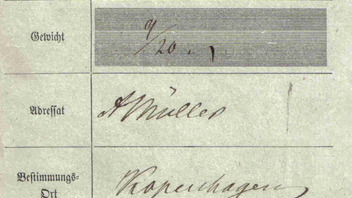 Gewicht
9/20.
Adressat
A Müller
Bestimmungs-
Ort
Kopenhagen